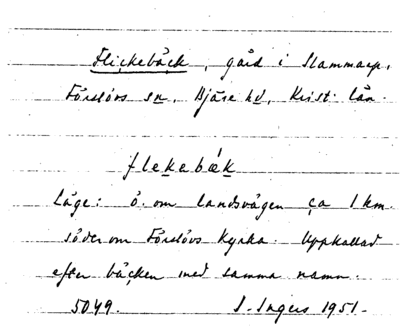 Flickebäck, gård i Slammarp,
Förslövs sn, Bjäre hd, Krist. län.
flekebǽk
Läge: ö. om landsvägen ca 1 km.
söder om Förslövs Kyrka. Uppkallad
efter bäcken med samma namn.
5049. I. Ingers 1951.